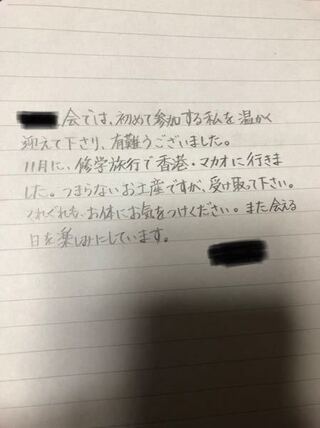 会では、初めて参加する私を温かく
迎えて下さり、有難うございました。
11月に、修学旅行で香港・マカオに行きま
した。つまらないお土産ですが、受け取って下さい。
くれぐれも、お体にお気をつけください。また会える
日を楽しみにしています。